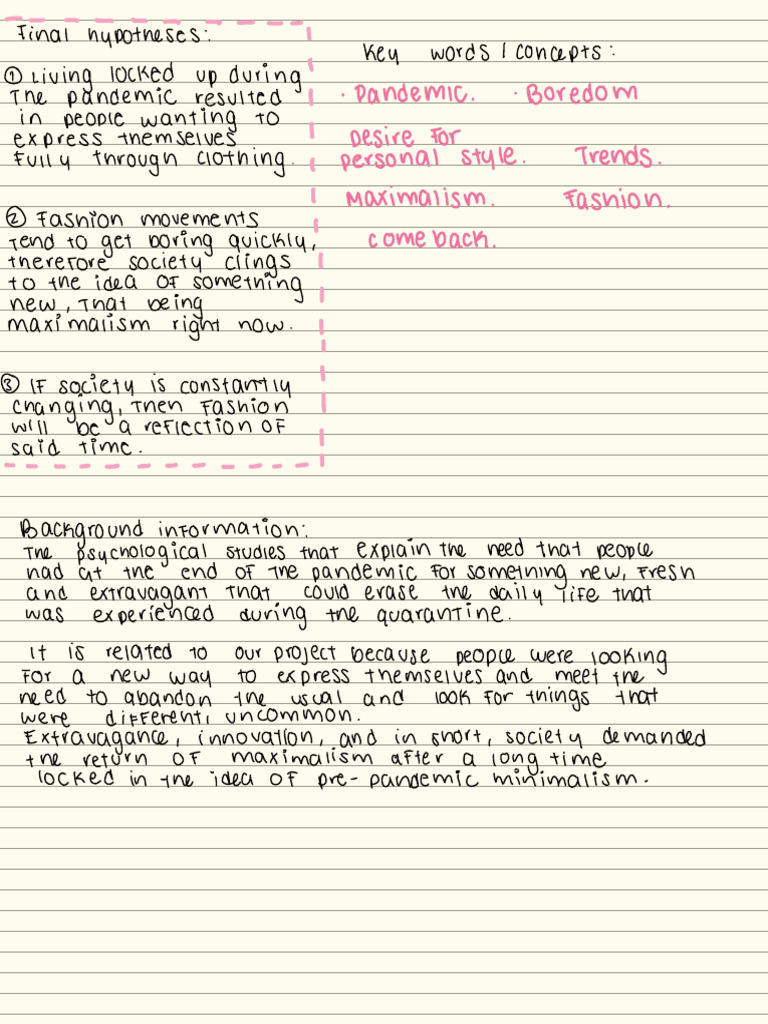 Final hypotheses:
① Living locked up during
The pandemic resulted
in people wanting to
express themselves
fully through clothing.
② Fashion movements
Tend to get boring quickly,
therefore society clings
to the idea of something
new, that being
maximalism right now.
③ If society is constantly
changing, then fashion
will be a reflection of
said time.
Key words / concepts:
· Pandemic. · Boredom
Desire for
personal style. Trends.
Maximalism. Fashion.
come back.
Background information:
The psychological studies that explain the need that people
had at the end of the pandemic for something new, fresh
and extravagant that could erase the daily life that
was experienced during the quarantine.
It is related to our project because people were looking
for a new way to express themselves and meet the
need to abandon the usual and look for things that
were different, uncommon.
Extravagance, innovation, and in short, society demanded
the return of maximalism after a long time
locked in the idea of pre-pandemic minimalism.